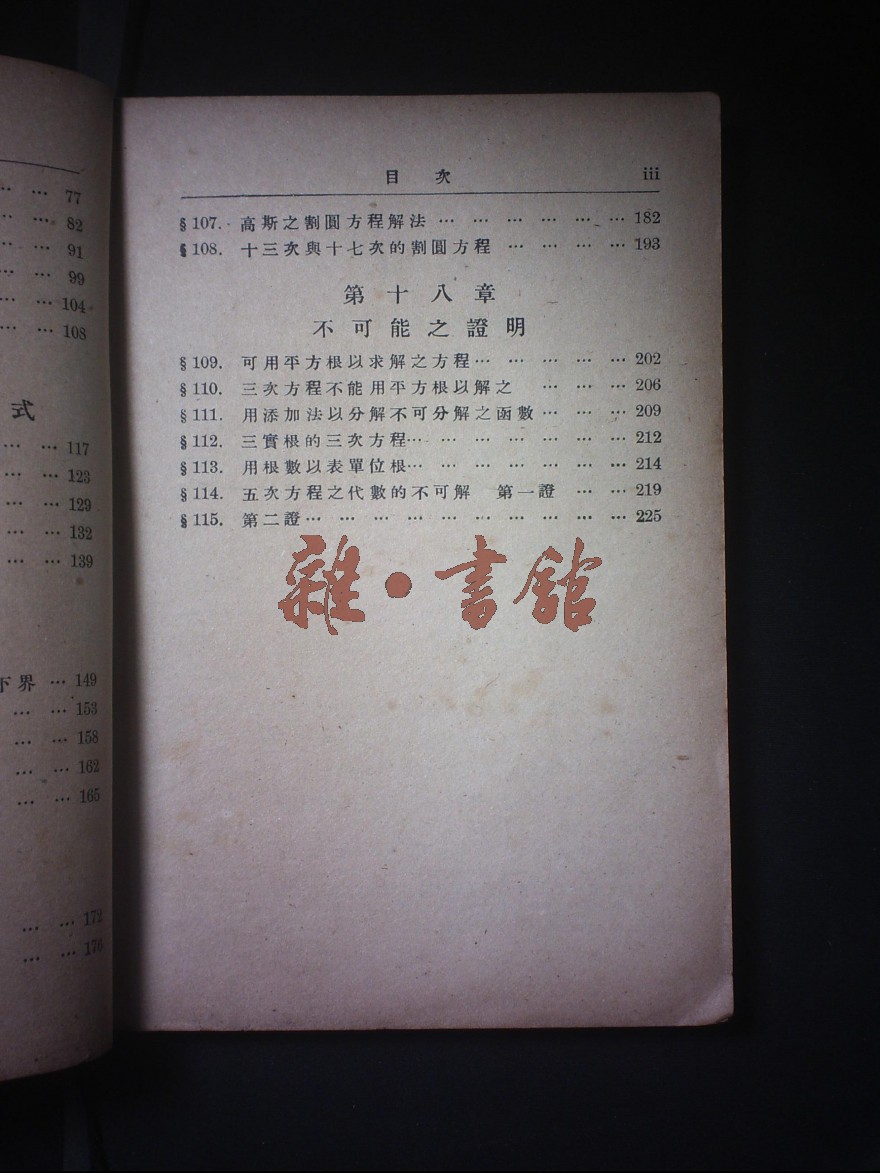 77
82
91
99
104
108
式
117
123
129
132
139
下界 … 149
153
158
162
165
172
176
目 次 iii
§107. 高斯之割圓方程解法 … … … … … … 182
§108. 十三次與十七次的割圓方程 … … … … 193
第十八章
不可能之證明
§109. 可用平方根以求解之方程 … … … … … 202
§110. 三次方程不能用平方根以解之 … … … 206
§111. 用添加法以分解不可分解之函數 … … … 209
§112. 三實根的三次方程 … … … … … … … 212
§113. 用根數以表單位根 … … … … … … … 214
§114. 五次方程之代數的不可解 第一證 … … 219
§115. 第二證 … … … … … … … … … … 225
雜·書館